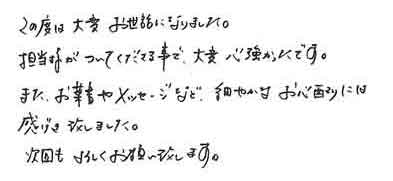 この度は大変お世話になりました。
担当様がついてくださる事で、大変心強かったです。
また、お葉書やメッセージなど、細やかなお心配りには
感激致しました。
次回もよろしくお願い致します。